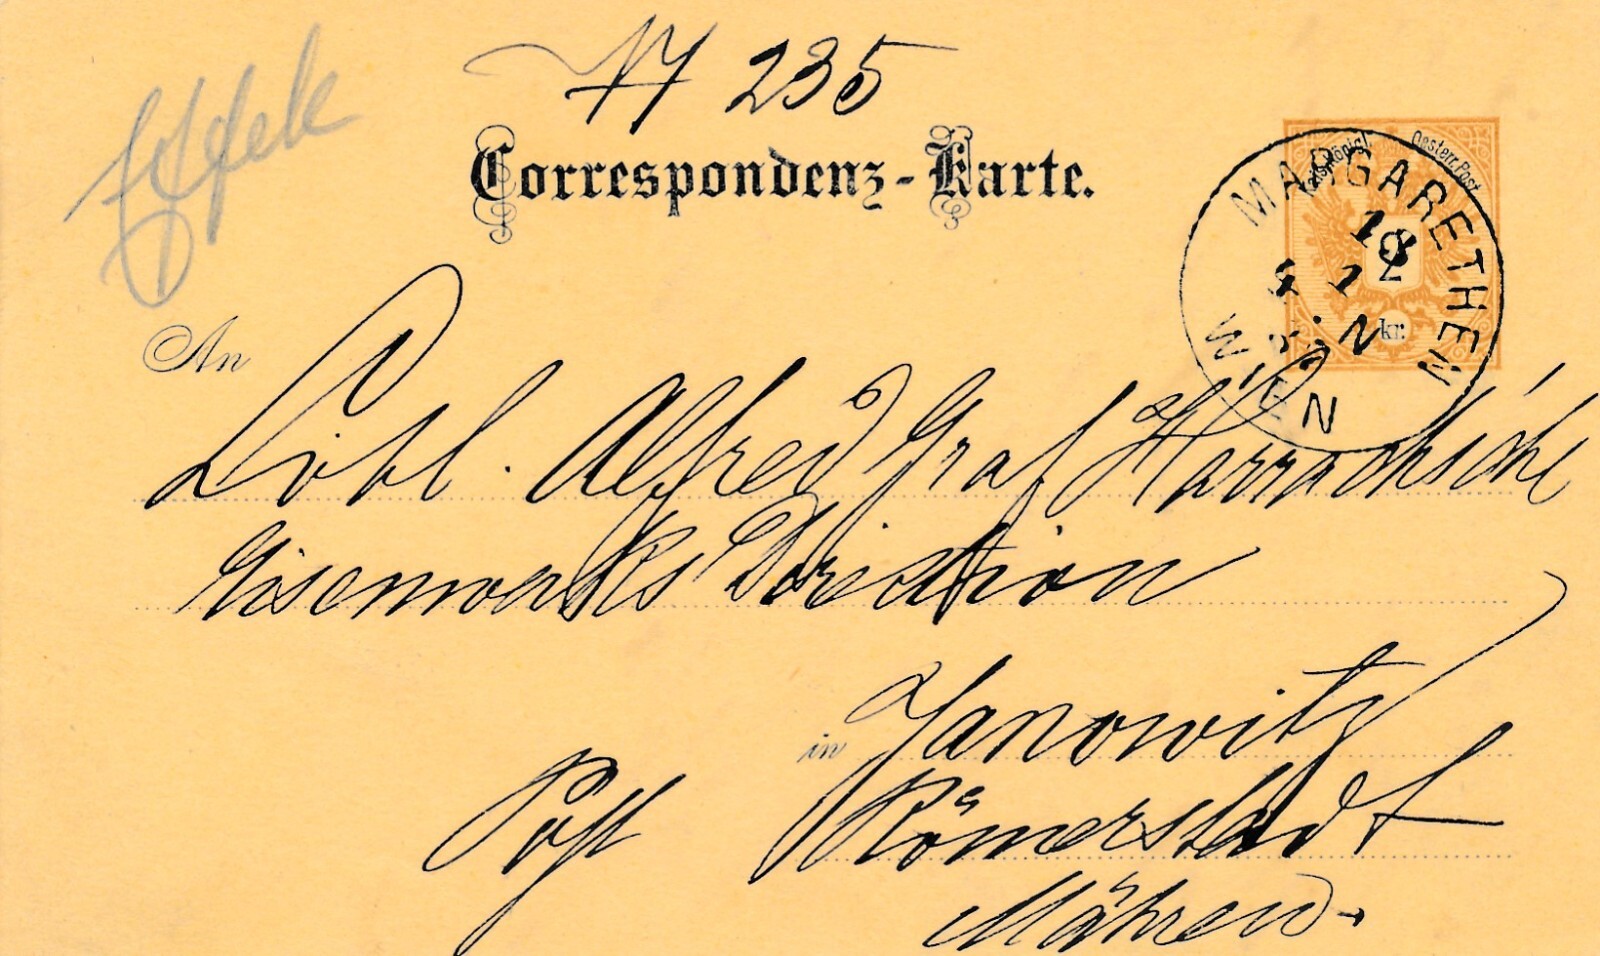 235
Correspondenz-Karte.
Kais. Königl. Oesterr. Post
MARGARETHEN
WIEN
18
1
N
2 kr.
An
Löbl. Alfred Graf Harrachsche
Eisenwerks Direction
in Janowitz
Post Römerstadt
Mähren